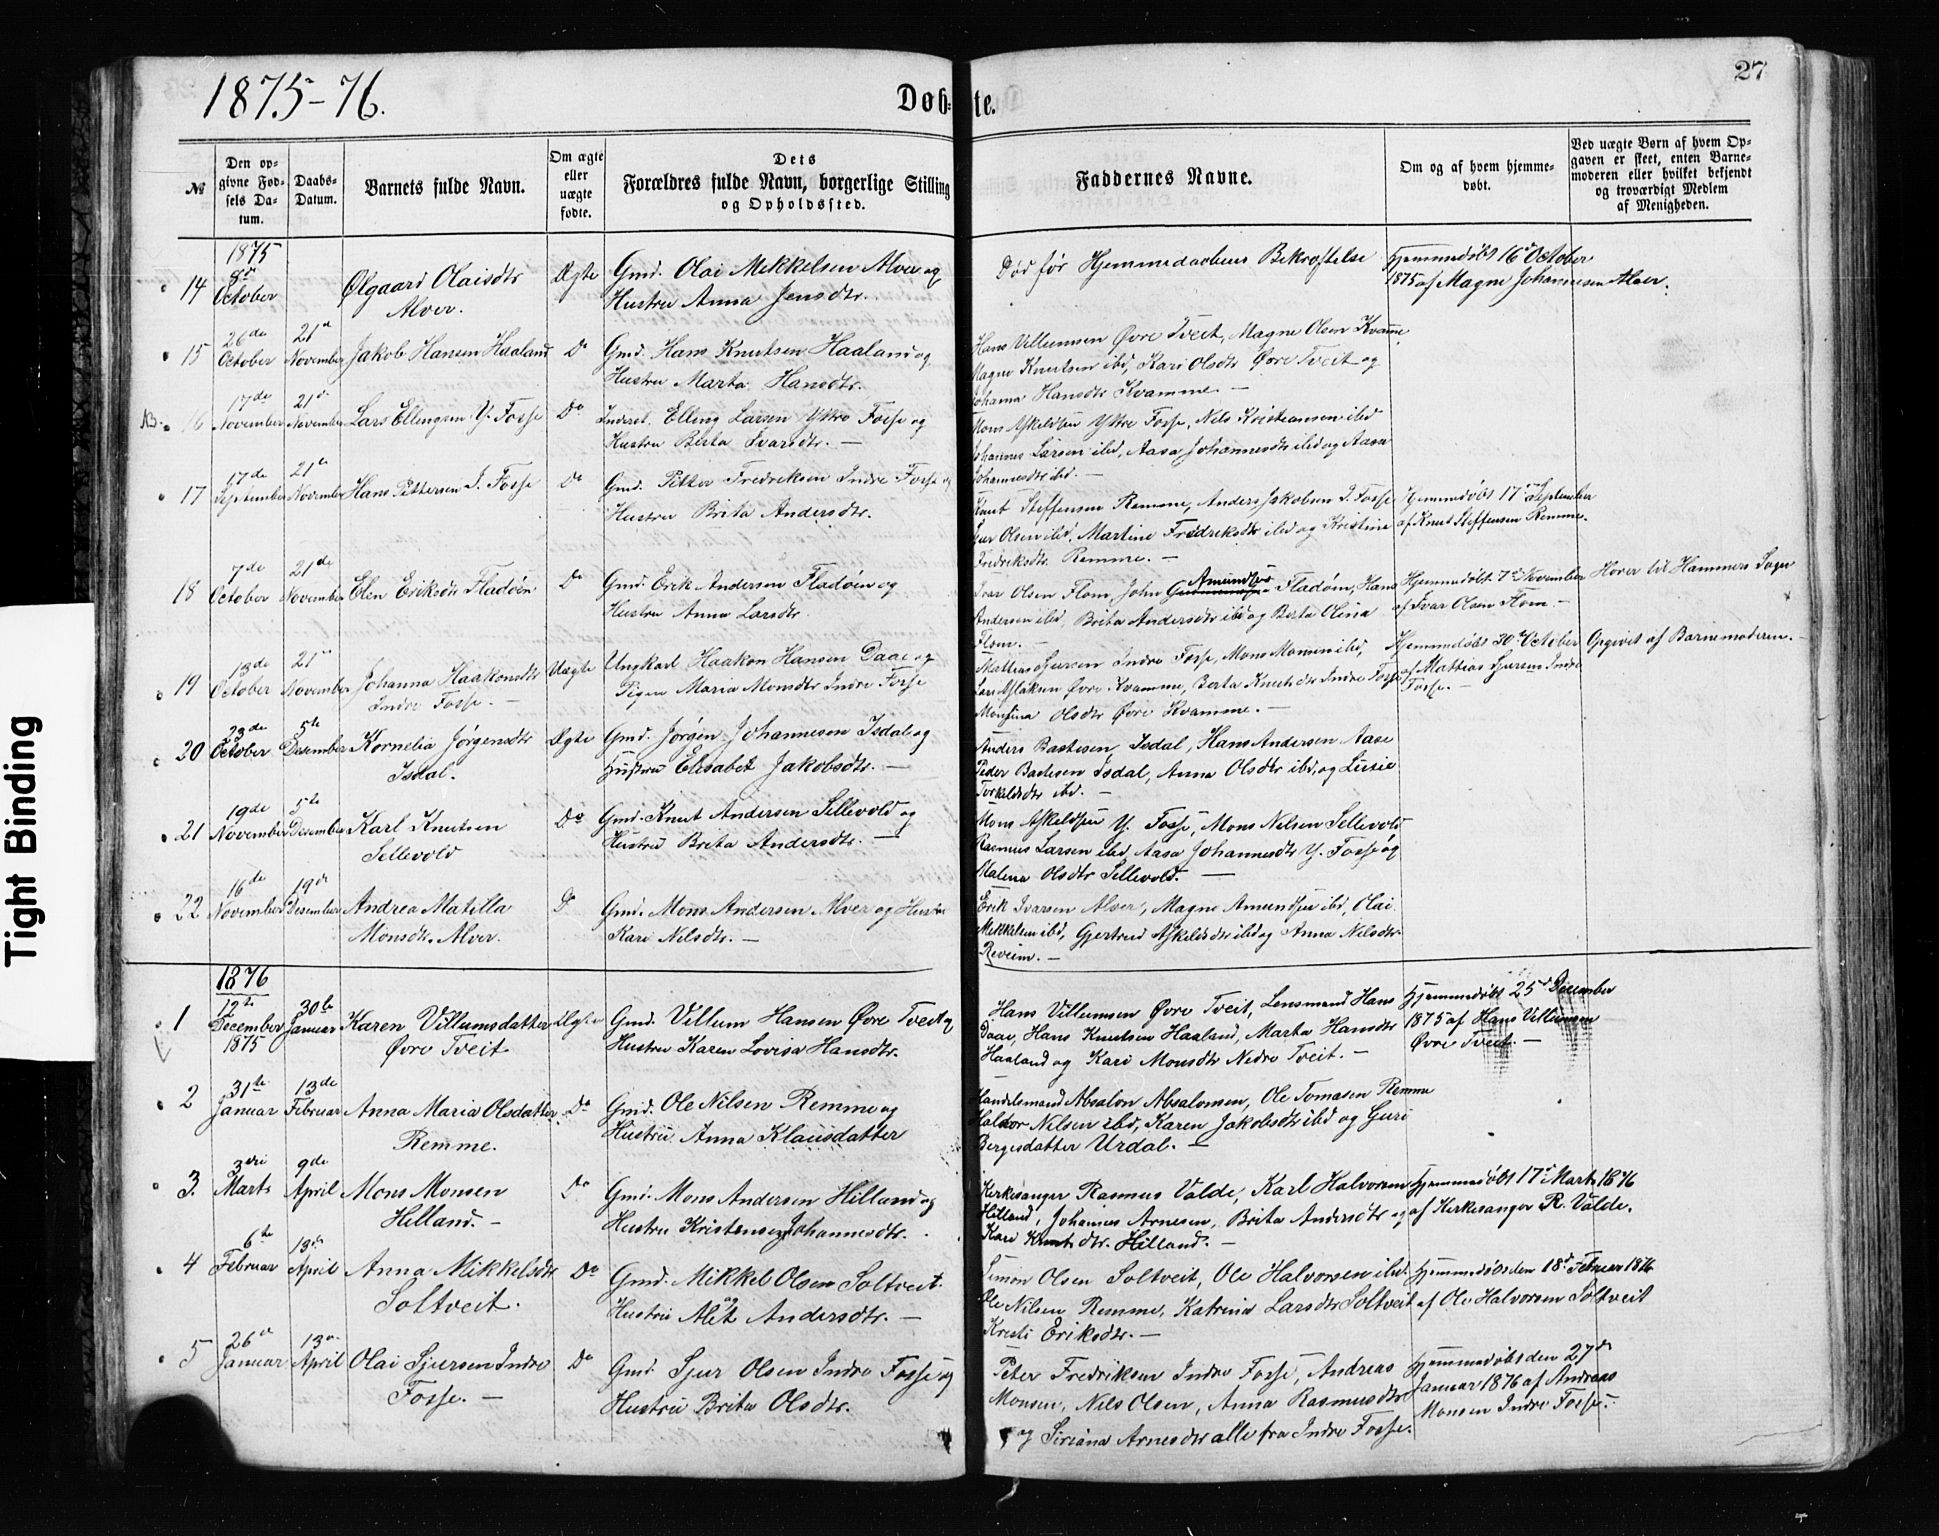 1875-76.
Døb-
te.
27
№
Den op-
givne Fød-
sels Da-
tum.
Daabs-
Datum.
Barnets fulde Navn.
Om ægte
eller
uægte
fødte.
Dets
Forældres fulde Navn, borgerlige Stilling
og Opholdssted.
Faddernes Navne.
Om og af hvem hjemme-
døbt.
Ved uægte Børn af hvem Op-
gaven er skeet, enten Barne-
moderen eller hvilket bekjendt
og troværdigt Medlem
af Menigheden.
1875
14 8de October Ølgaard Olaisdtr Ægte Gmd. Olai Mikkelsen Alver og
Alver. Hustru Anna Jensdtr.
Død før Hjemmedaabens Bekræftelse
Hjemmedøbt 16de October
1875 af Magne Johannesen Alver.
26de 21de
15 October November Jakob Hansen Haaland Do Gmd. Hans Knutsen Haaland og
Hustru Marta Hansdtr.
Hans Villumsen Øvre Tveit, Magne Olsen Kvamme,
Magne Knutsen ibd, Kari Olsdtr Øvre Tveit og
Johanna Hansdtr Kvamme. —
17de 21de
16 November November Lars Ellingsen Y. Fosse Do Inderst. Elling Larsen Yttre Fosse og
Hustru Berta Ivarsdtr. —
Mons Askeldsen Yttre Fosse, Nils Kristiansen ibd
Johannes Larsen ibd, Aasa Johannesdtr ibd og Aasa
Johannesdtr ibd. —
17de 21de
17 September November Hans Pettersen I. Fosse Do Gmd. Petter Fredriksen Indre Fosse og
Hustru Brita Andersdtr.
Knut Steffensen Remme, Anders Jakobsen I. Fosse
Sjur Olsen ibd, Martine Fredriksdtr ibd og Kristine
Fredriksdtr Remme. —
Hjemmedøbt 17de September
af Knut Steffensen Remme.
7de 21de
18 October November Elen Eriksdtr Fladøen Do Gmd. Erik Andersen Fladøen og
Hustru Anna Larsdtr.
Amundsen
Ivar Olsen Flom, John Fladøen, Hans
Andersen ibd, Brita Andersdtr ibd og Berta Olina
Flom. —
Hjemmedøbt 7de November
af Ivar Olsen Flom. —
Hører til Hammers Sogn
13de 21de
19 October November Johanna Haakonsdtr Uægte Ungkarl Haakon Hansen Daae og
Indre Fosse. — Pigen Maria Monsdtr Indre Fosse
Mattias Sjursen Indre Fosse, Mons Monsen ibd,
Lars Aslaksen Øvre Kvamme, Berta Knutsdtr Indre Fosse
Monsina Olsdtr Øvre Kvamme. —
Hjemmedøbt 30te October
af Mattias Sjursen Indre
Fosse. —
Opgivet af Barnemoderen. —
23de 5te
20 October Desember Kornelia Jørgensdtr Ægte Gmd. Jørgen Johannesen Isdal og
Isdal. Hustru Elisabet Jakobsdtr. —
Anders Bastesen Isdal, Hans Andersen Aase
Peder Bastesen Isdal, Anna Olsdtr ibd, og Lusie
Torkelsdtr ibd. —
19de 5te
21 November Desember Karl Knutsen Do Gmd. Knut Andersen Sellevold og
Sellevold Hustru Brita Andersdtr. —
Mons Askeldsen Y. Fosse, Mons Nilsen Sellevold
Rasmus Larsen ibd, Aasa Johannesdtr Y. Fosse og
Malena Olsdtr Sellevold. —
16de 19de
22 November Desember Andrea Matilla Do Gmd. Mons Andersen Alver og Hustru
Monsdtr. Alver. Kari Nilsdtr. —
Erik Ivarsen Alver, Magne Amundsen ibd, Olai
Mikkelsen ibd, Gjertrud Askeldsdtr ibd og Anna Nilsdtr
1876
12te 30te
1 December Januar Karen Villumsdatter Ægte Gmd. Villum Hansen Øvre Tveit og
1875 Øvre Tveit Hustru Karen Lovisa Hansdtr.
Hans Villumsen Øvre Tveit, Lensmand Hans
Daae, Hans Knutsen Haaland, Marta Hansdtr
Haaland og Kari Monsdtr Nedre Tveit. —
Hjemmedøbt 25de December
1875 af Hans Villumsen
Øvre Tveit. —
31te 13de
2 Januar Februar Anna Maria Olsdatter Do Gmd. Ole Nilsen Remme og
Remme. Hustru Anna Klausdatter
Handelsmand Absalon Absalonsen, Ole Tomasen Remme
Haldor Nilsen ibd, Karen Jakobsdtr ibd og Guri
Bergesdatter Urdal. —
3die 9de
3. Marts April Mons Monsen Do Gmd. Mons Andersen Hilland og
Hilland. — Hustru Kristense Johannesdtr.
Kirkesanger Rasmus Valde, Karl Halvorsen
Hilland, Johannes Arnesen, Brita Andersdtr og
Kari Knutsdtr. Hilland. —
Hjemmedøbt 17de Marts 1876
af Kirkesanger R. Valde.
6te 13de
4 Februar April Anna Mikkelsdtr Do Gmd. Mikkel Olsen Soltveit
Soltveit. og
Hustru Alet Andersdtr. —
Simon Olsen Soltveit, Ole Halvorsen ibd.
Ole Nilsen Remme, Katrina Larsdtr Soltveit
Kresti Eriksdtr. —
Hjemmedøbt den 18de Februar 1876
af Ole Halvorsen Soltveit
26de 13de
5 Januar April Olai Sjursen Indre Do Gmd. Sjur Olsen Indre Fosse og
Fosse. — Hustru Brita Olsdtr.
Peter Fredriksen Indre Fosse, Andreas
Monsen, Nils Olsen, Anna Rasmusdtr
og Siriana Arnesdtr alle fra Indre Fosse.
Hjemmedøbt den 27de
Januar 1876 af Andreas
Monsen Indre Fosse. —
Tight Binding